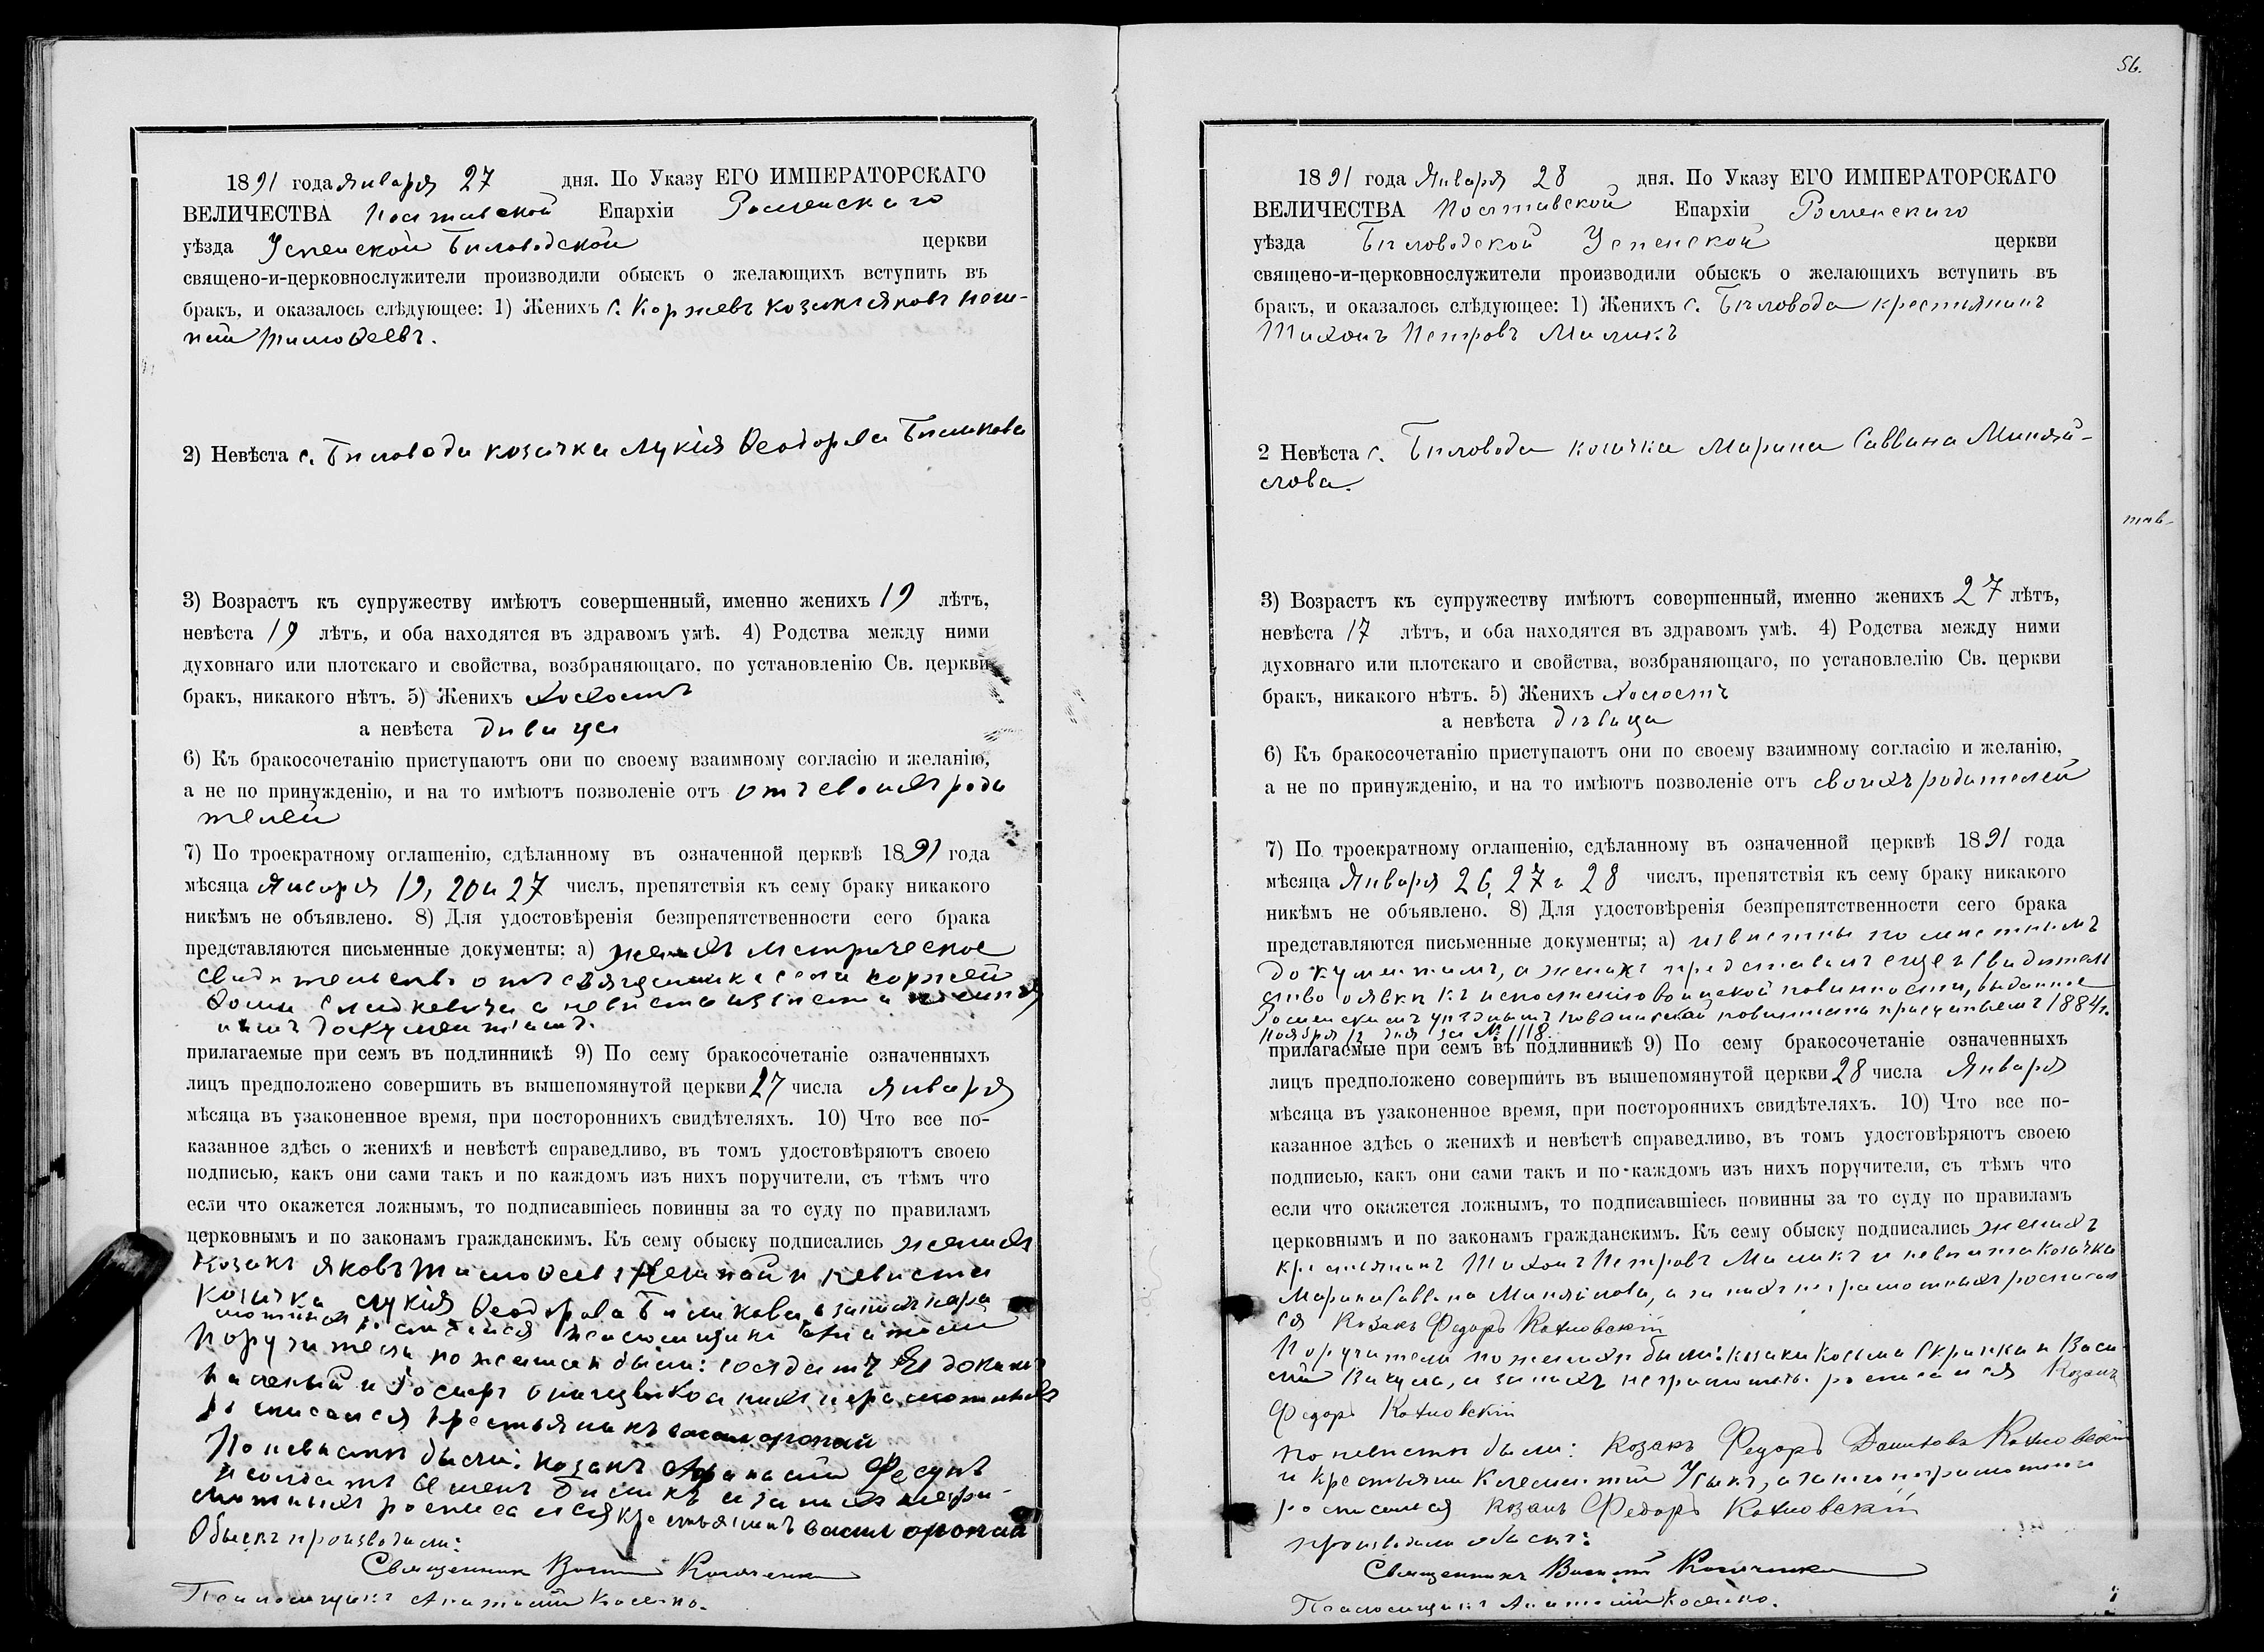 1891 года января 27 дня. По Указу ЕГО ИМПЕРАТОРСКАГО
ВЕЛИЧЕСТВА Полтавской Епархіи Роменскаго
уѣзда Успенской Бѣловодской церкви
священо-и-церковнослужители производили обыскъ о желающихъ вступить въ
бракъ, и оказалось слѣдующее: 1) Женихъ с. Коржевъ козакъ Яковъ
Тимоѳеевъ.
2) Невѣста с. Бѣловода козачка Лукія Ѳеодорова Бѣликова
3) Возрастъ къ супружеству имѣютъ совершенный, именно женихъ 19 лѣтъ,
невѣста 19 лѣтъ, и оба находятся въ здравомъ умѣ. 4) Родства между ними
духовнаго или плотскаго и свойства, возбраняющаго, по установленію Св. церкви
бракъ, никакого нѣтъ. 5) Женихъ холостъ
а невѣста дѣвица
6) Къ бракосочетанію приступаютъ они по своему взаимному согласію и желанію,
а не по принужденію, и на то имѣютъ позволеніе отъ отъ своихъ роди
телей
7) По троекратному оглашенію, сдѣланному въ означенной церквѣ 1891 года
мѣсяца Января 19, 20 и 27 числъ, препятствія къ сему браку никакого
никѣмъ не объявлено. 8) Для удостовѣренія безпрепятственности сего брака
представляются письменные документы: а) женихъ метрическое
свидѣтельство отъ священника села Коржей
а невѣста извѣстна
документамъ.
прилагаемые при семъ въ подлинникѣ 9) По сему бракосочетаніе означенныхъ
лицъ предположено совершить въ вышепомянутой церкви 27 числа января
мѣсяца въ узаконенное время, при постороннихъ свидѣтеляхъ. 10) Что все по-
казанное здѣсь о женихѣ и невѣстѣ справедливо, въ томъ удостовѣряютъ своею
подписью, какъ они сами такъ и по каждомъ изъ нихъ поручители, съ тѣмъ что
если что окажется ложнымъ, то подписавшіесь повинны за то суду по правиламъ
церковнымъ и по законамъ гражданскимъ. Къ сему обыску подписались женихъ
козакъ Яковъ Тимоѳеевъ и невѣста
козачка Лукія Ѳеодорова Бѣликова, а за нихъ негра
мотныхъ росписался псаломщикъ
Поручители по женихѣ были: солдатъ
неграмотныхъ
росписался крестьянинъ
По невѣстѣ были: козакъ Афанасій Фесунъ
и солдатъ Бѣликъ а за нихъ негра-
мотныхъ росписался крестьянинъ
Обыскъ производили:
Священникъ
Псаломщикъ
56.
1891 года Января 28 дня. По Указу ЕГО ИМПЕРАТОРСКАГО
ВЕЛИЧЕСТВА Полтавской Епархіи Роменскаго
уѣзда Бѣловодской Успенской церкви
священо-и-церковнослужители производили обыскъ о желающихъ вступить въ
бракъ, и оказалось слѣдующее: 1) Женихъ с. Бѣловода крестьянинъ
Тихонъ Петровъ Маликъ
2 Невѣста с. Бѣловода козачка Марина Саввина
3) Возрастъ къ супружеству имѣютъ совершенный, именно женихъ 27 лѣтъ,
невѣста 17 лѣтъ, и оба находятся въ здравомъ умѣ. 4) Родства между ними
духовнаго или плотскаго и свойства, возбраняющаго, по установлелію Св. церкви
бракъ, никакого нѣтъ. 5) Женихъ холостъ
а невѣста дѣвица
6) Къ бракосочетанію приступаютъ они по своему взаимному согласію и желанію,
а не по принужденію, и на то имѣютъ позволеніе отъ своихъ родителей
7) По троекратному оглашенію, сдѣланному въ означенной церквѣ 1891 года
мѣсяца Января 26, 27 и 28 числъ, препятствія къ сему браку никакого
никѣмъ не объявлено. 8) Для удостовѣренія безпрепятственности сего брака
представляются письменные документы; а) извѣстны по мѣстнымъ
документамъ, а женихъ представилъ еще свидѣтель
ство о явкѣ къ исполненію воинской повинности, выданное
Роменскимъ уѣзднымъ по воинской повинности присутствіемъ 1884 г.
Ноября 12 дня за № 1118.
прилагаемые при семъ въ подлинникѣ 9) По сему бракосочетаніе означенныхъ
лицъ предположено совершить въ вышепомянутой церкви 28 числа Января
мѣсяца въ узаконенное время, при постороннихъ свидѣтеляхъ. 10) Что все по-
казанное здѣсь о женихѣ и невѣстѣ справедливо, въ томъ удостовѣряютъ своею
подписью, какъ они сами такъ и по каждомъ изъ нихъ поручители, съ тѣмъ что
если что окажется ложнымъ, то подписавшіесь повинны за то суду по правиламъ
церковнымъ и по законамъ гражданскимъ. Къ сему обыску подписались женихъ
крестьянинъ Тихонъ Петровъ Маликъ и невѣста козачка
Марина Саввина а за нихъ неграмотныхъ росписал
ся Козакъ Федоръ Кохновскій
Поручители по женихѣ были: козаки Косьма Скрипка и Васи
лій Вакула, а за нихъ неграмотн. росписался Козакъ
Федоръ Кохновскій
по невѣстѣ были: Козакъ Федоръ Даниловъ Кохновскій
и крестьянинъ Климентій Усикъ, а за него неграмотнаго
росписался Козакъ Федоръ Кохновскій
производили обыскъ:
Священникъ
Псаломщикъ